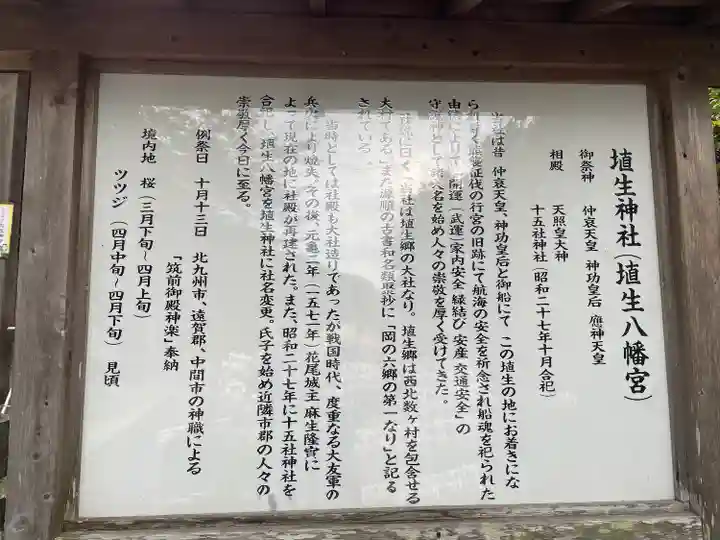 埴生神社(埴生八幡宮)
御祭神 仲哀天皇 神功皇后 應神天皇
相殿 天照皇大神
十五社神社(昭和二十七年十月合祀)
当社は昔 仲哀天皇、神功皇后と御船にて この埴生の地にお着きにな
征伐の行宮の旧跡にて航海の安全を祈念され船魂を祀られた
由 開運(武運)家内安全 縁結び 安産 交通安全」の
守護神として 名を始め人々の崇敬を厚く受けてきた。
曰く 当社は埴生郷の大社なり。埴生郷は西北数ヶ村を包含せる
大村である」また源順の古書和名類聚抄に「岡の六郷の第一なり」と記る
されている。
当時としては社殿も大社造りであったが戦国時代、度重なる大友軍の
兵火により焼失、その後、元亀二年(一五七一年)花尾城主 麻生隆實に
よって現在の地に社殿が再建された。また、昭和二十七年に十五社神社を
合祀し、埴生八幡宮を埴生神社に社名変更。氏子を始め近隣市郡の人々の
崇敬厚く今日に至る。
例祭日 十月十三日 北九州市、遠賀郡、中間市の神職による
「筑前御殿神楽」奉納
境内地 桜(三月下旬~四月上旬)
ツツジ(四月中旬~四月下旬) 見頃